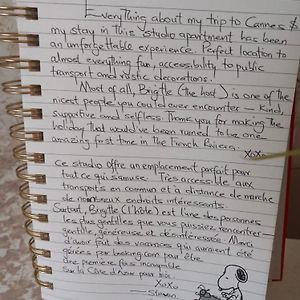 Everything about my trip to Cannes &
my stay in this studio apartment has been
an unforgettable experience. Perfect location to
almost everything fun, accessibility to public
transport and rustic decorations!
Most of all, Brigitte (the host) is one of the
nicest people you could ever encounter – kind,
supportive and selfless. Thank you for making the
holiday that would've been ruined to be one
amazing first time in The French Riviera.
XoXo
Ce studio offre un emplacement parfait pour
tout ce qui s'amuse. Très accessible aux
transports en commun et à distance de marche
de nombreux endroits intéressants.
Surtout, Brigitte (l'hôte) est l'une des personnes
les plus gentilles que vous puissiez rencontrer –
gentille, généreuse et désintéressée. Merci
d'avoir fait des vacances qui auraient été
gâchées par booking.com pour être
une première fois incroyable
sur la Côte d'Azur pour moi.
XoXo